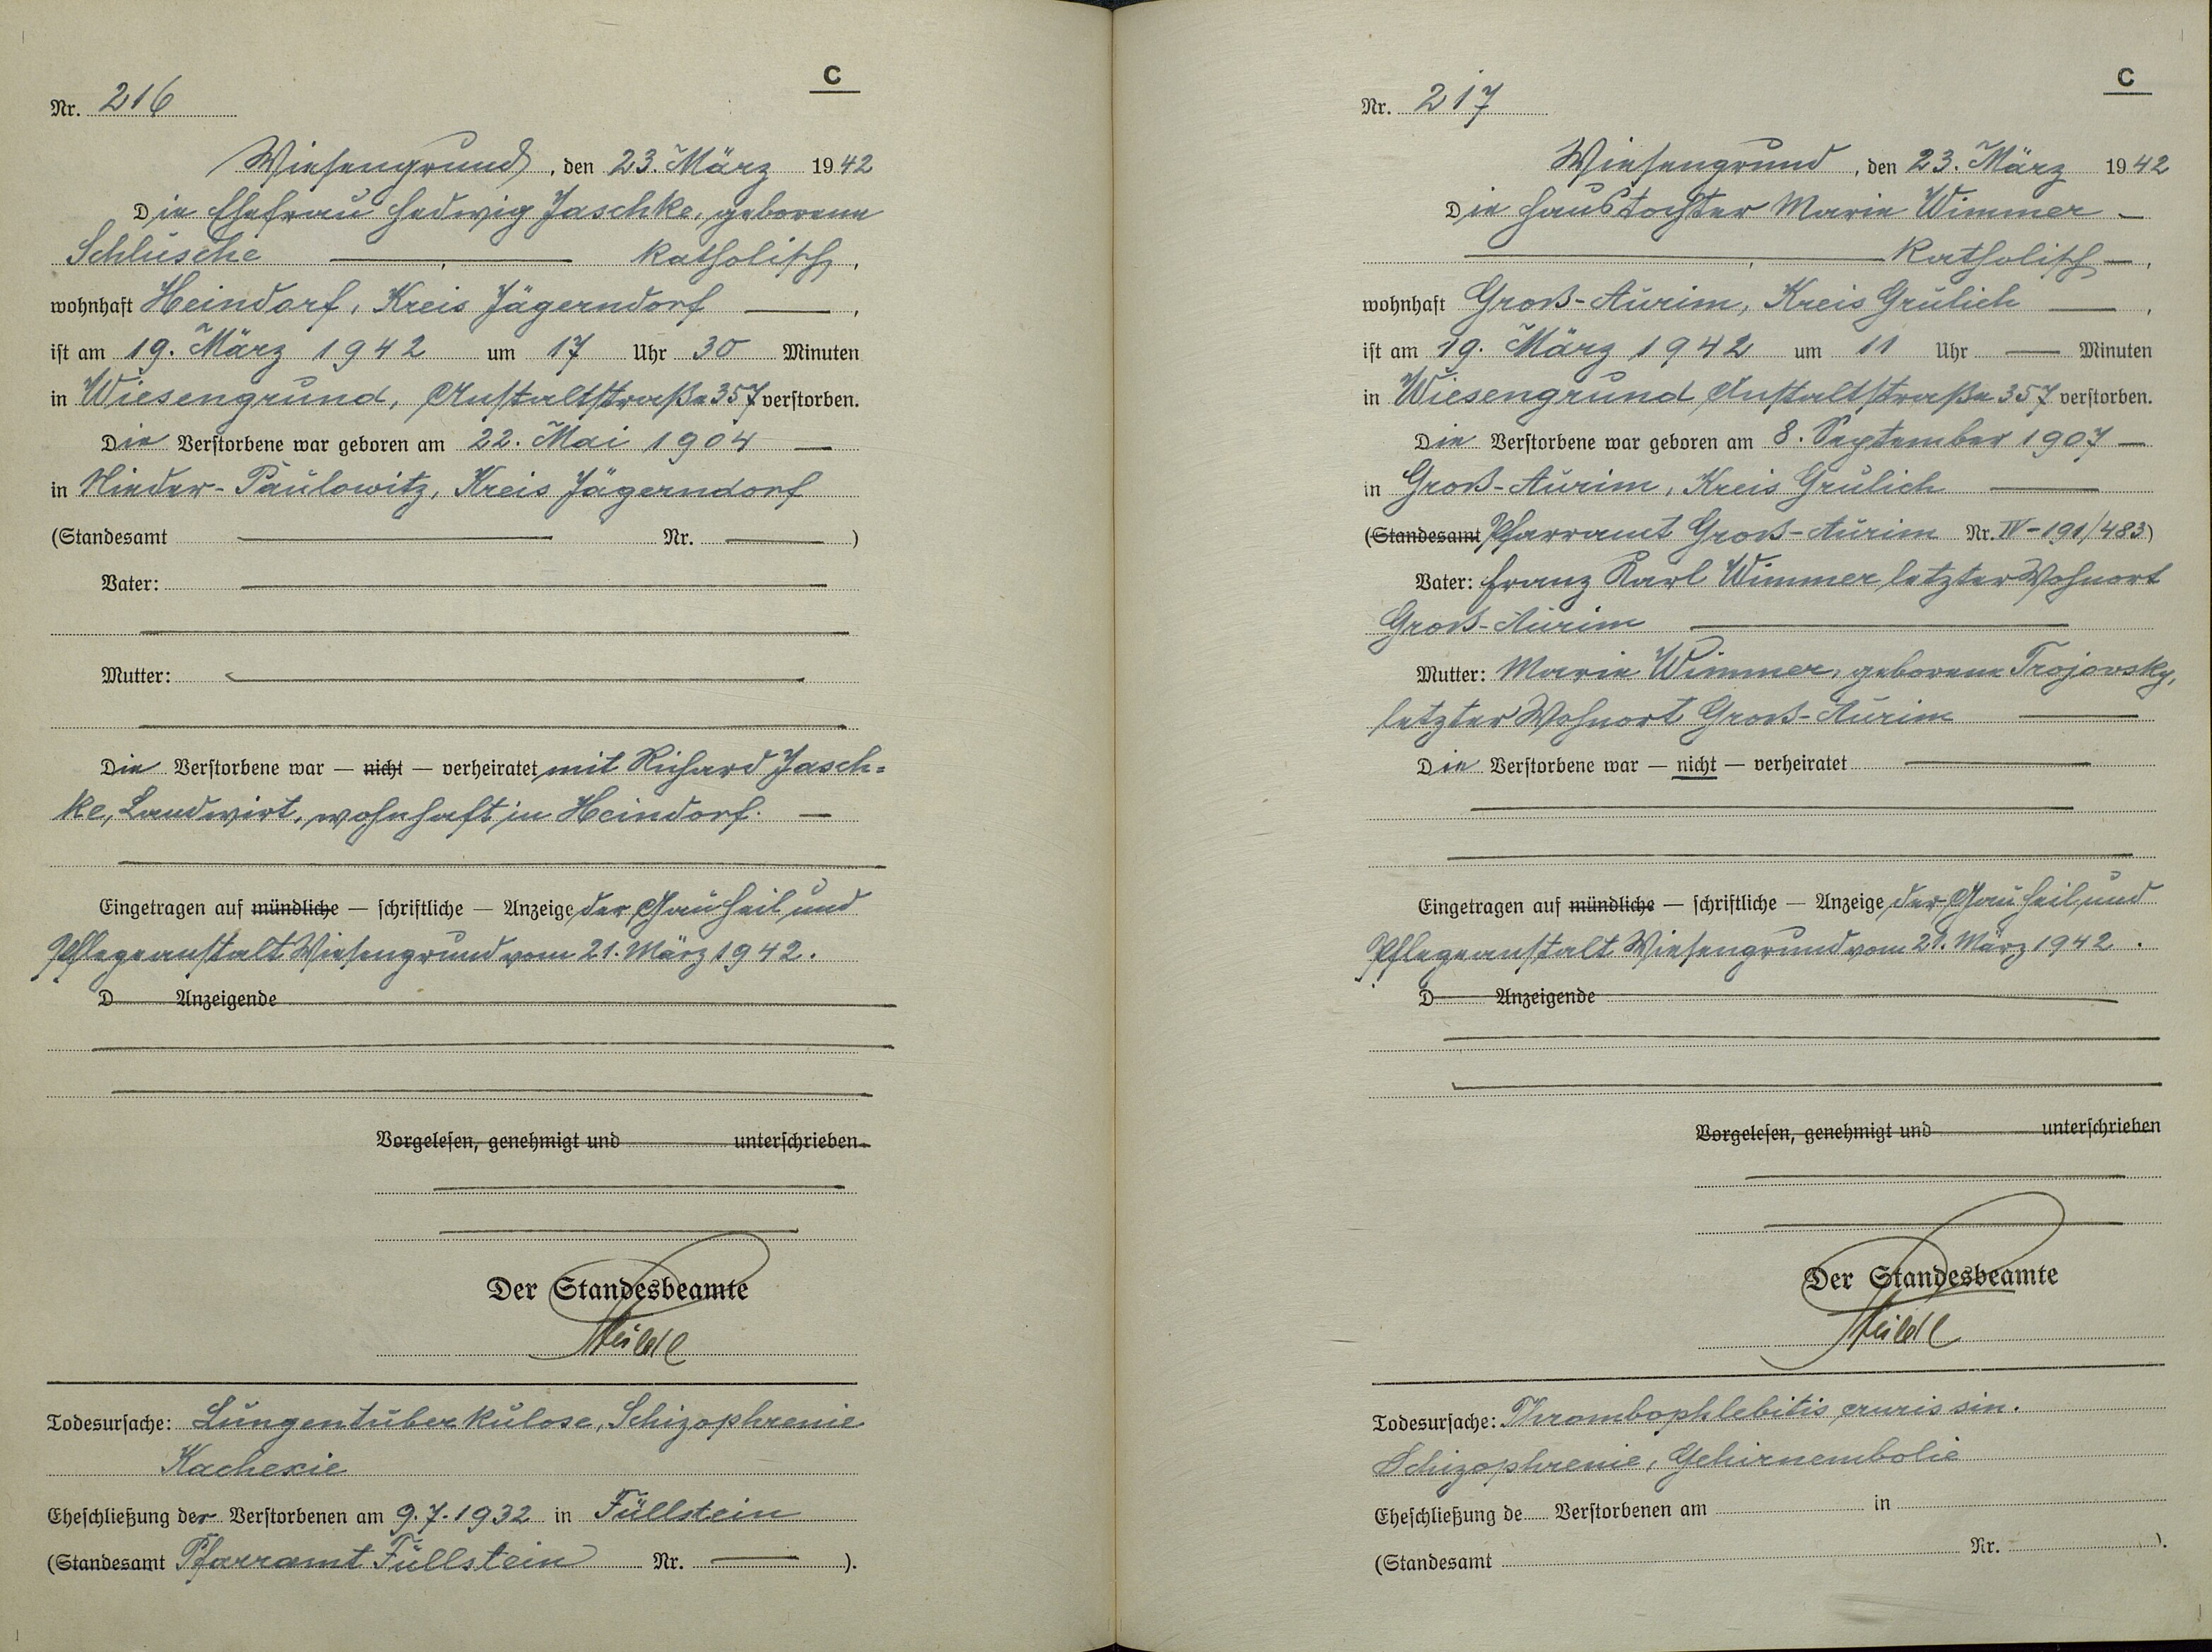 C
Nr. 216
Wiesengrund, den 23. März 1942
Die Ehefrau Hedwig Jaschke, geborene
Schlusche katholisch,
wohnhaft Heindorf, Kreis Jägerndorf ,
ist am 19. März 1942 um 17 Uhr 30 Minuten
in Wiesengrund, Anstaltstraße 357 verstorben.
Die Verstorbene war geboren am 22. Mai 1904 —
in Nieder-Paulowitz, Kreis Jägerndorf
(Standesamt — Nr. — )
Vater: —
Mutter: —
Die Verstorbene war — nicht — verheiratet mit Richard Jasch=
ke, Landwirt, wohnhaft in Heindorf. —
Eingetragen auf mündliche — schriftliche — Anzeige der Gau Heil und
Pflegeanstalt Wiesengrund vom 21. März 1942.
D Anzeigende
Vorgelesen, genehmigt und unterschrieben
Der Standesbeamte
Todesursache: Lungentuberkulose, Schizophrenie
Kachexie
Eheschließung der Verstorbenen am 9.7.1932 in Füllstein
(Standesamt Pfarramt Füllstein Nr. — ).
C
Nr. 217
Wiesengrund, den 23. März 1942
Die Haustochter Marie Wimmer —
katholisch —,
wohnhaft Groß-Aurim, Kreis Grulich — ,
ist am 19. März 1942 um 11 Uhr — Minuten
in Wiesengrund Anstaltstraße 357 verstorben.
Die Verstorbene war geboren am 8. September 1907 —
in Groß-Aurim, Kreis Grulich —
(Standesamt Pfarramt Groß-Aurim Nr. IV-191/483)
Vater: Franz Karl Wimmer letzter Wohnort
Groß-Aurim —
Mutter: Marie Wimmer, geborene Trojovsky,
letzter Wohnort Groß-Aurim —
Die Verstorbene war — nicht — verheiratet —
Eingetragen auf mündliche — schriftliche — Anzeige der Gau Heil und
Pflegeanstalt Wiesengrund vom 21. März 1942.
D Anzeigende
Vorgelesen, genehmigt und unterschrieben
Der Standesbeamte
Todesursache: Thrombophlebitis cruris sin.
Schizophrenie, Gehirnembolie
Eheschließung de Verstorbenen am in
(Standesamt Nr. ).